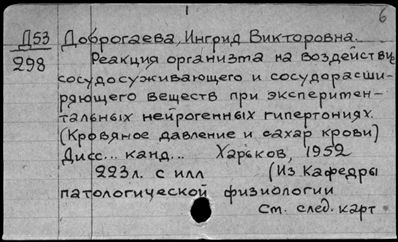 6
Д53 Доброгаева, Ингрид Викторовна.
298 Реакция организма на воздействие
сосудосуживающего и сосудорасши-
ряющего веществ при эксперимен-
тальных нейрогенных гипертониях.
(Кровяное давление и сахар крови)
Дисс... канд... Харьков, 1952
223л. с илл (Из Кафедры
патологической физиологии
См. след. карт